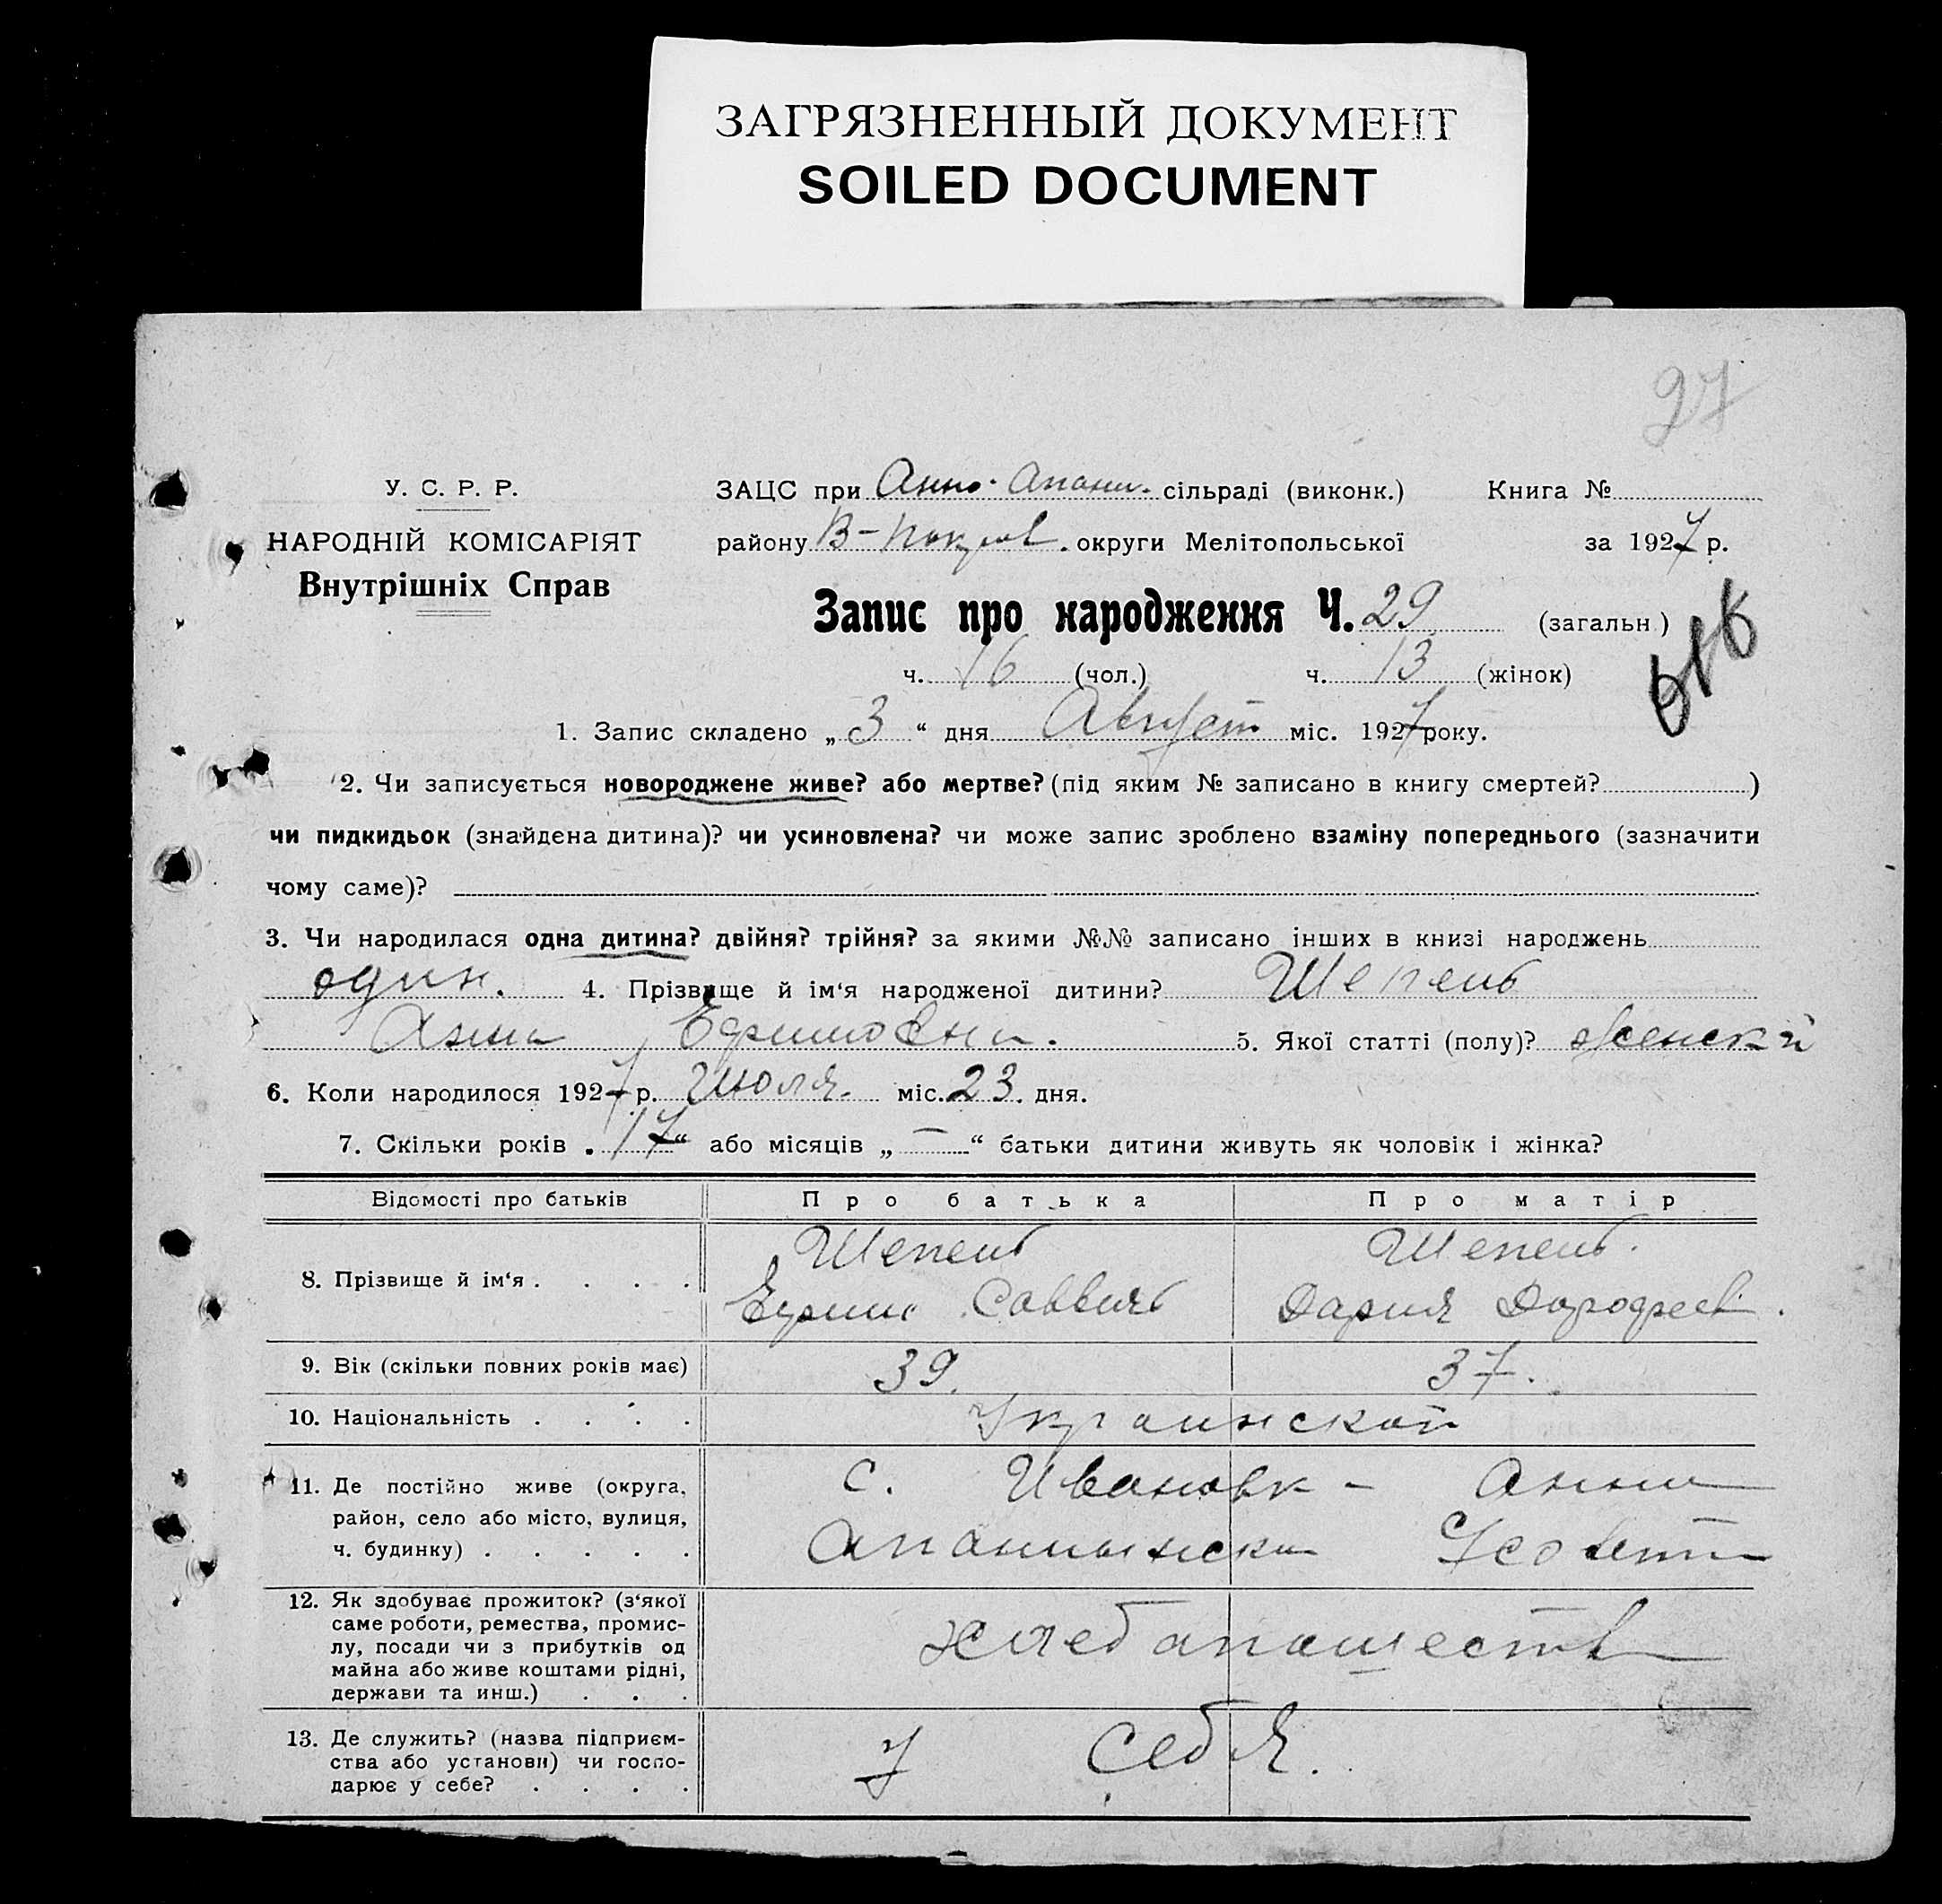 ЗАГРЯЗНЕННЫЙ ДОКУМЕНТ
SOILED DOCUMENT
97
У. С. Р. Р.
НАРОДНІЙ КОМІСАРІЯТ
Внутрішніх Справ
ЗАЦС при Анно-Апани. сільраді (виконк.) Книга №
району В-Покров. округи Мелітопольської за 1927 р.
Запис про народження Ч. 29 (загальн.)
ч. 16 (чол.) ч. 13 (жінок)
1. Запис складено „ 3 “ дня Август міс. 1927 року.
2. Чи записується новороджене живе? або мертве? (під яким № записано в книгу смертей? )
чи пидкидьок (знайдена дитина)? чи усиновлена? чи може запис зроблено взаміну попереднього (зазначити
чому саме)?
3. Чи народилася одна дитина? двійня? трійня? за якими №№ записано інших в книзі народжень
один. 4. Прізвище й ім‘я народженої дитини? Шепель
Анна Ефимовна. 5. Якої статті (полу)? женский
6. Коли народилося 1927 р. Июля. міс. 23. дня.
7. Скільки років „ 17 “ або місяців „ — “ батьки дитини живуть як чоловік і жінка?
Відомості про батьків Про батька Про матір
8. Прізвище й ім‘я . . . . Шепель Шепель.
Ефим Саввич Дария Дорофеев.
9. Вік (скільки повних років має) 39. 37.
10. Національність . . . . Украинской
11. Де постійно живе (округа, с. Ивановк - Анно
район, село або місто, вулиця,
ч. будинку) . . . . . Апанлынска
12. Як здобуває прожиток? (з‘якої
саме роботи, ремества, промис-
лу, посади чи з прибутків од хлебапашеств
майна або живе коштами рідні,
держави та инш.) . . .
13. Де служить? (назва підприєм-
ства або установи) чи госпо- У себя.
дарює у себе? . . . .